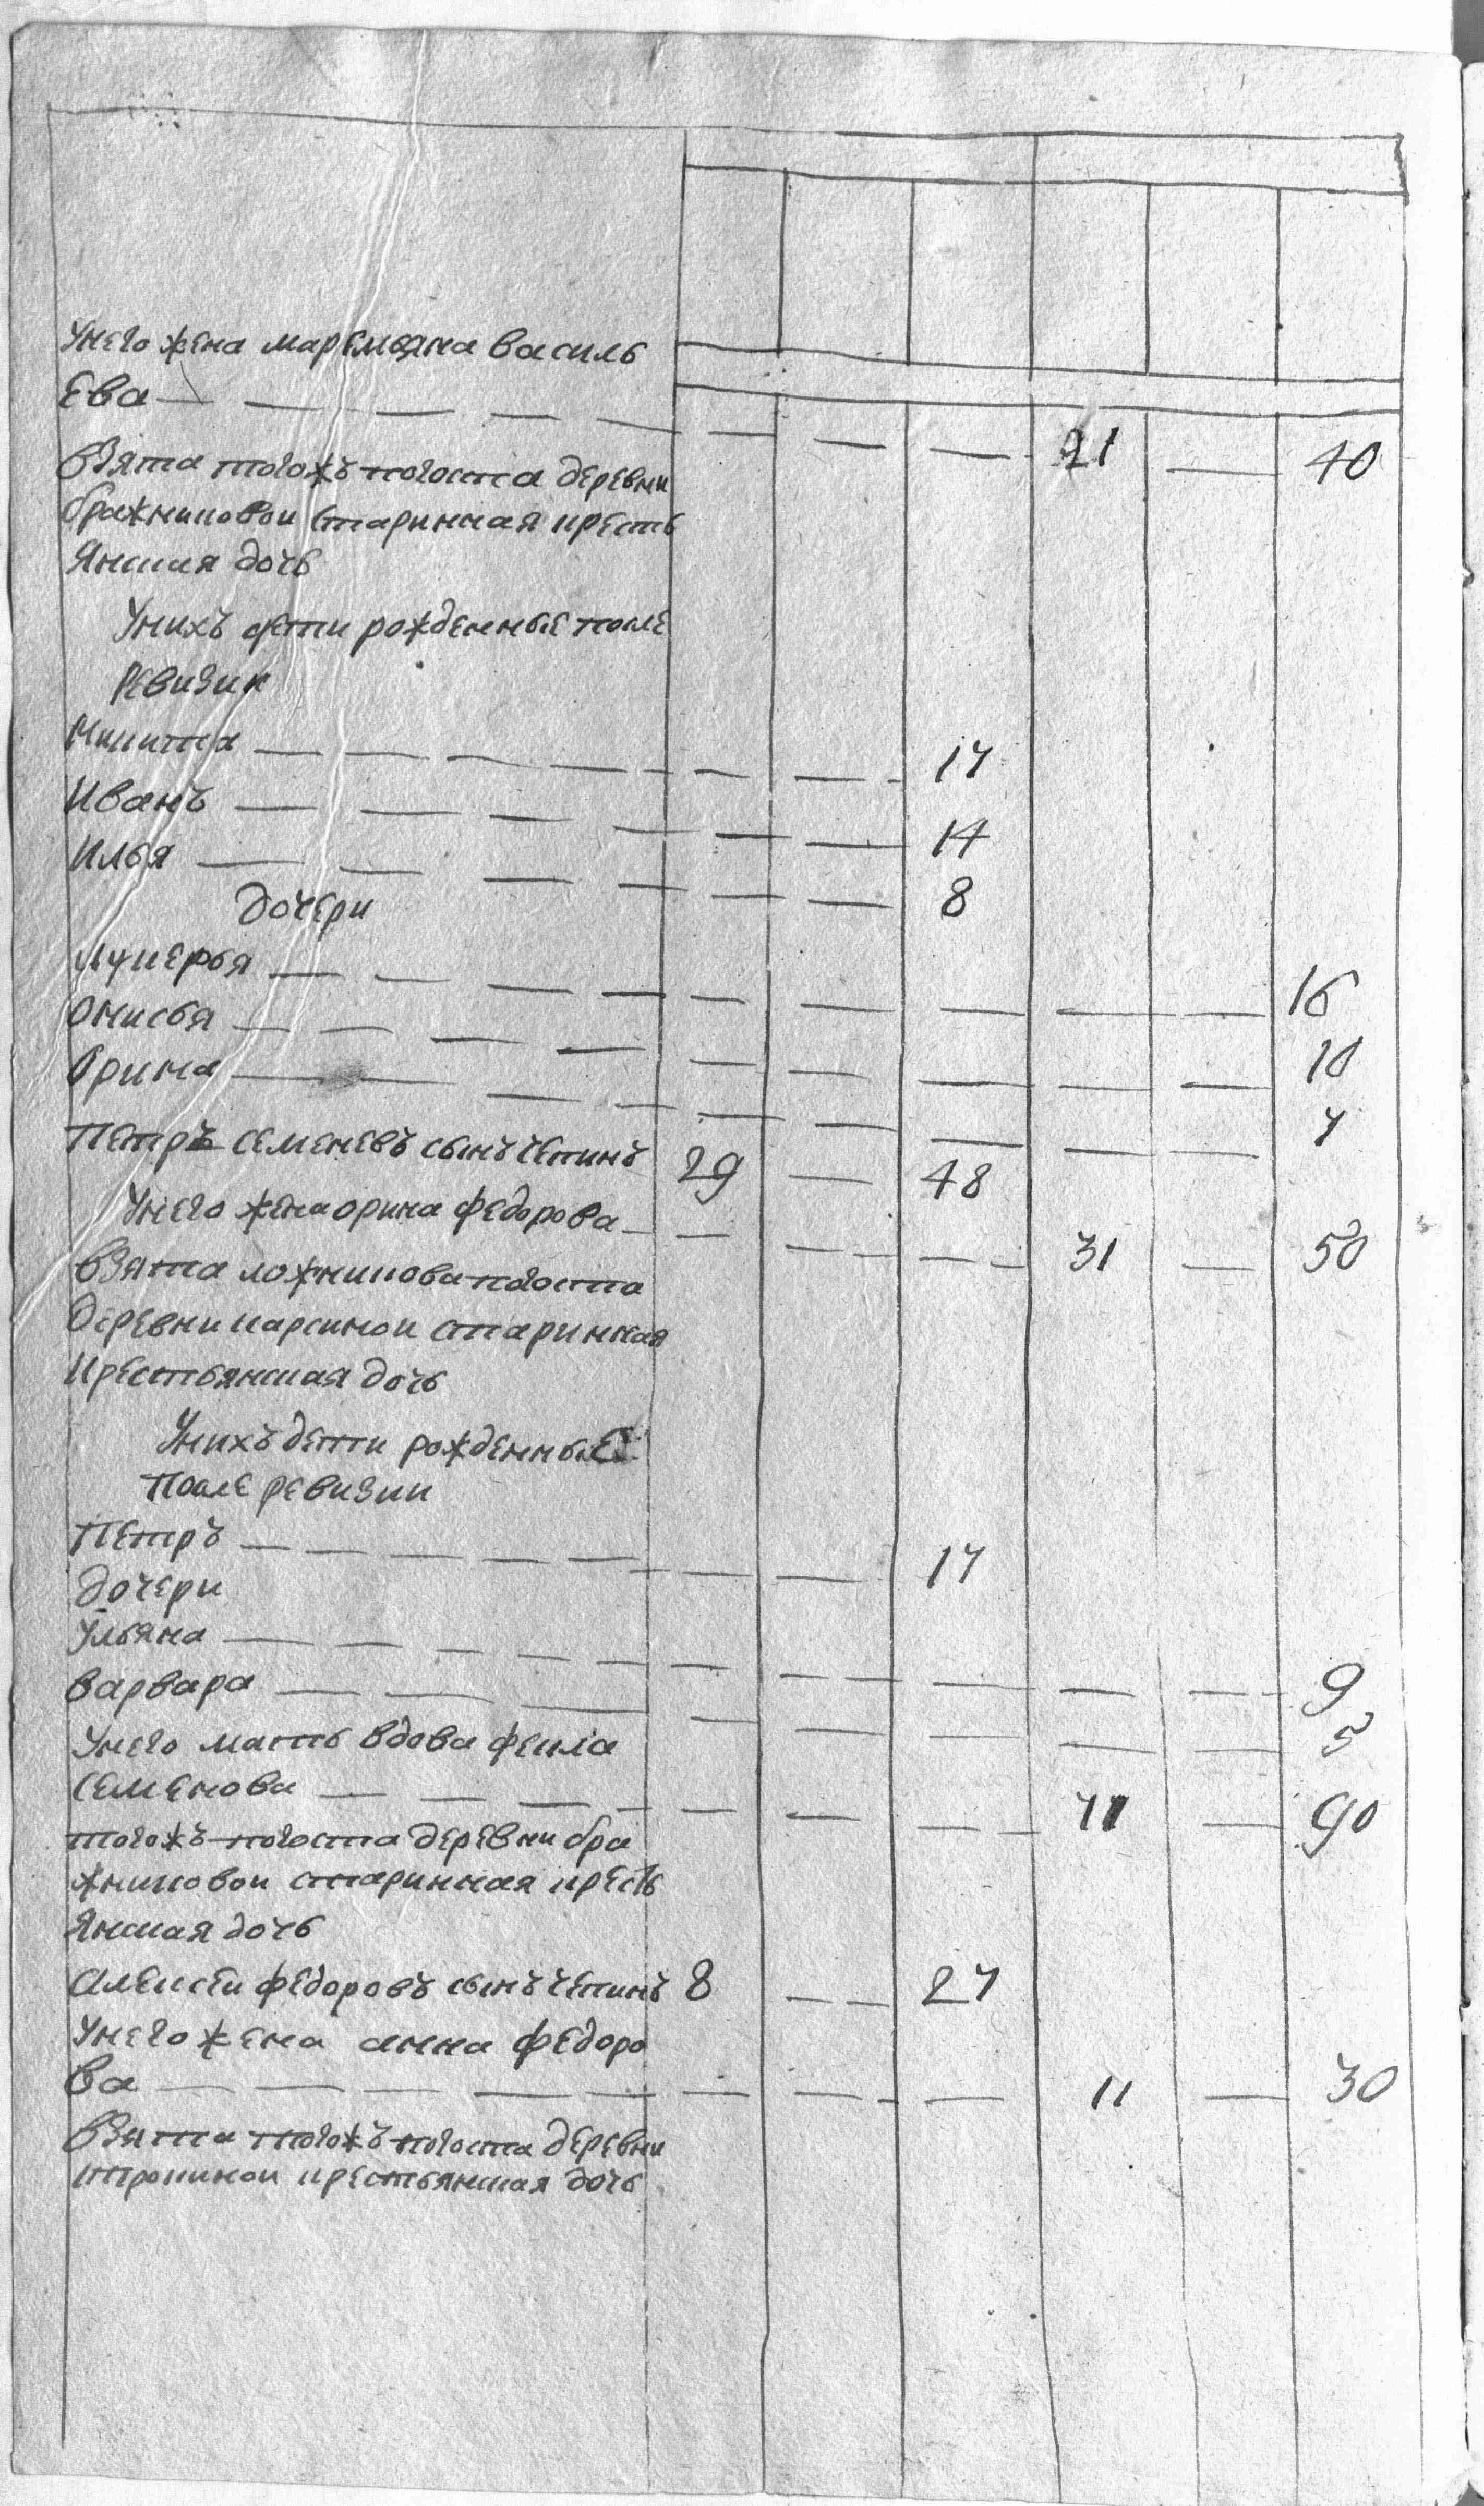 Унего жена маремьяна василь
Ева — — — — — — — — 21 — 40
взята тогожъ погоста деревни
бражниковои старинная кресть
Янская дочь
Унихъ дети рожденные после
Ревизии
Никита — — — — — — — 17
Иванъ — — — — — — 14
Илья — — — — — — 8
дочери
лукерья — — — — — — — — — 16
Онисья — — — — — — — — — 10
Орина — — — — — — — — — 7
Петръ семеневъ сынъ чепинъ 29 — 48
Унего жена орина федорова — — — — 31 — 50
взята ложникова погоста
деревни карсинои старинная
Крестьянская дочь
Унихъ дети рожденные
После ревизии
Петръ — — — — — — — 17
дочери
Ульяна — — — — — — — — — 9
варвара — — — — — — — — 5
Унего мать вдова фекла
семенова — — — — — — — — 71 — 90
тогожъ погоста деревни бра
жниковои старинная кресть
Янская дочь
Алексеи федоровъ сынъ чепинъ 8 — — 27
Унего жена анна федоро
ва — — — — — — — — 11 — 30
взята тогожъ погоста деревни
крестьянская дочь